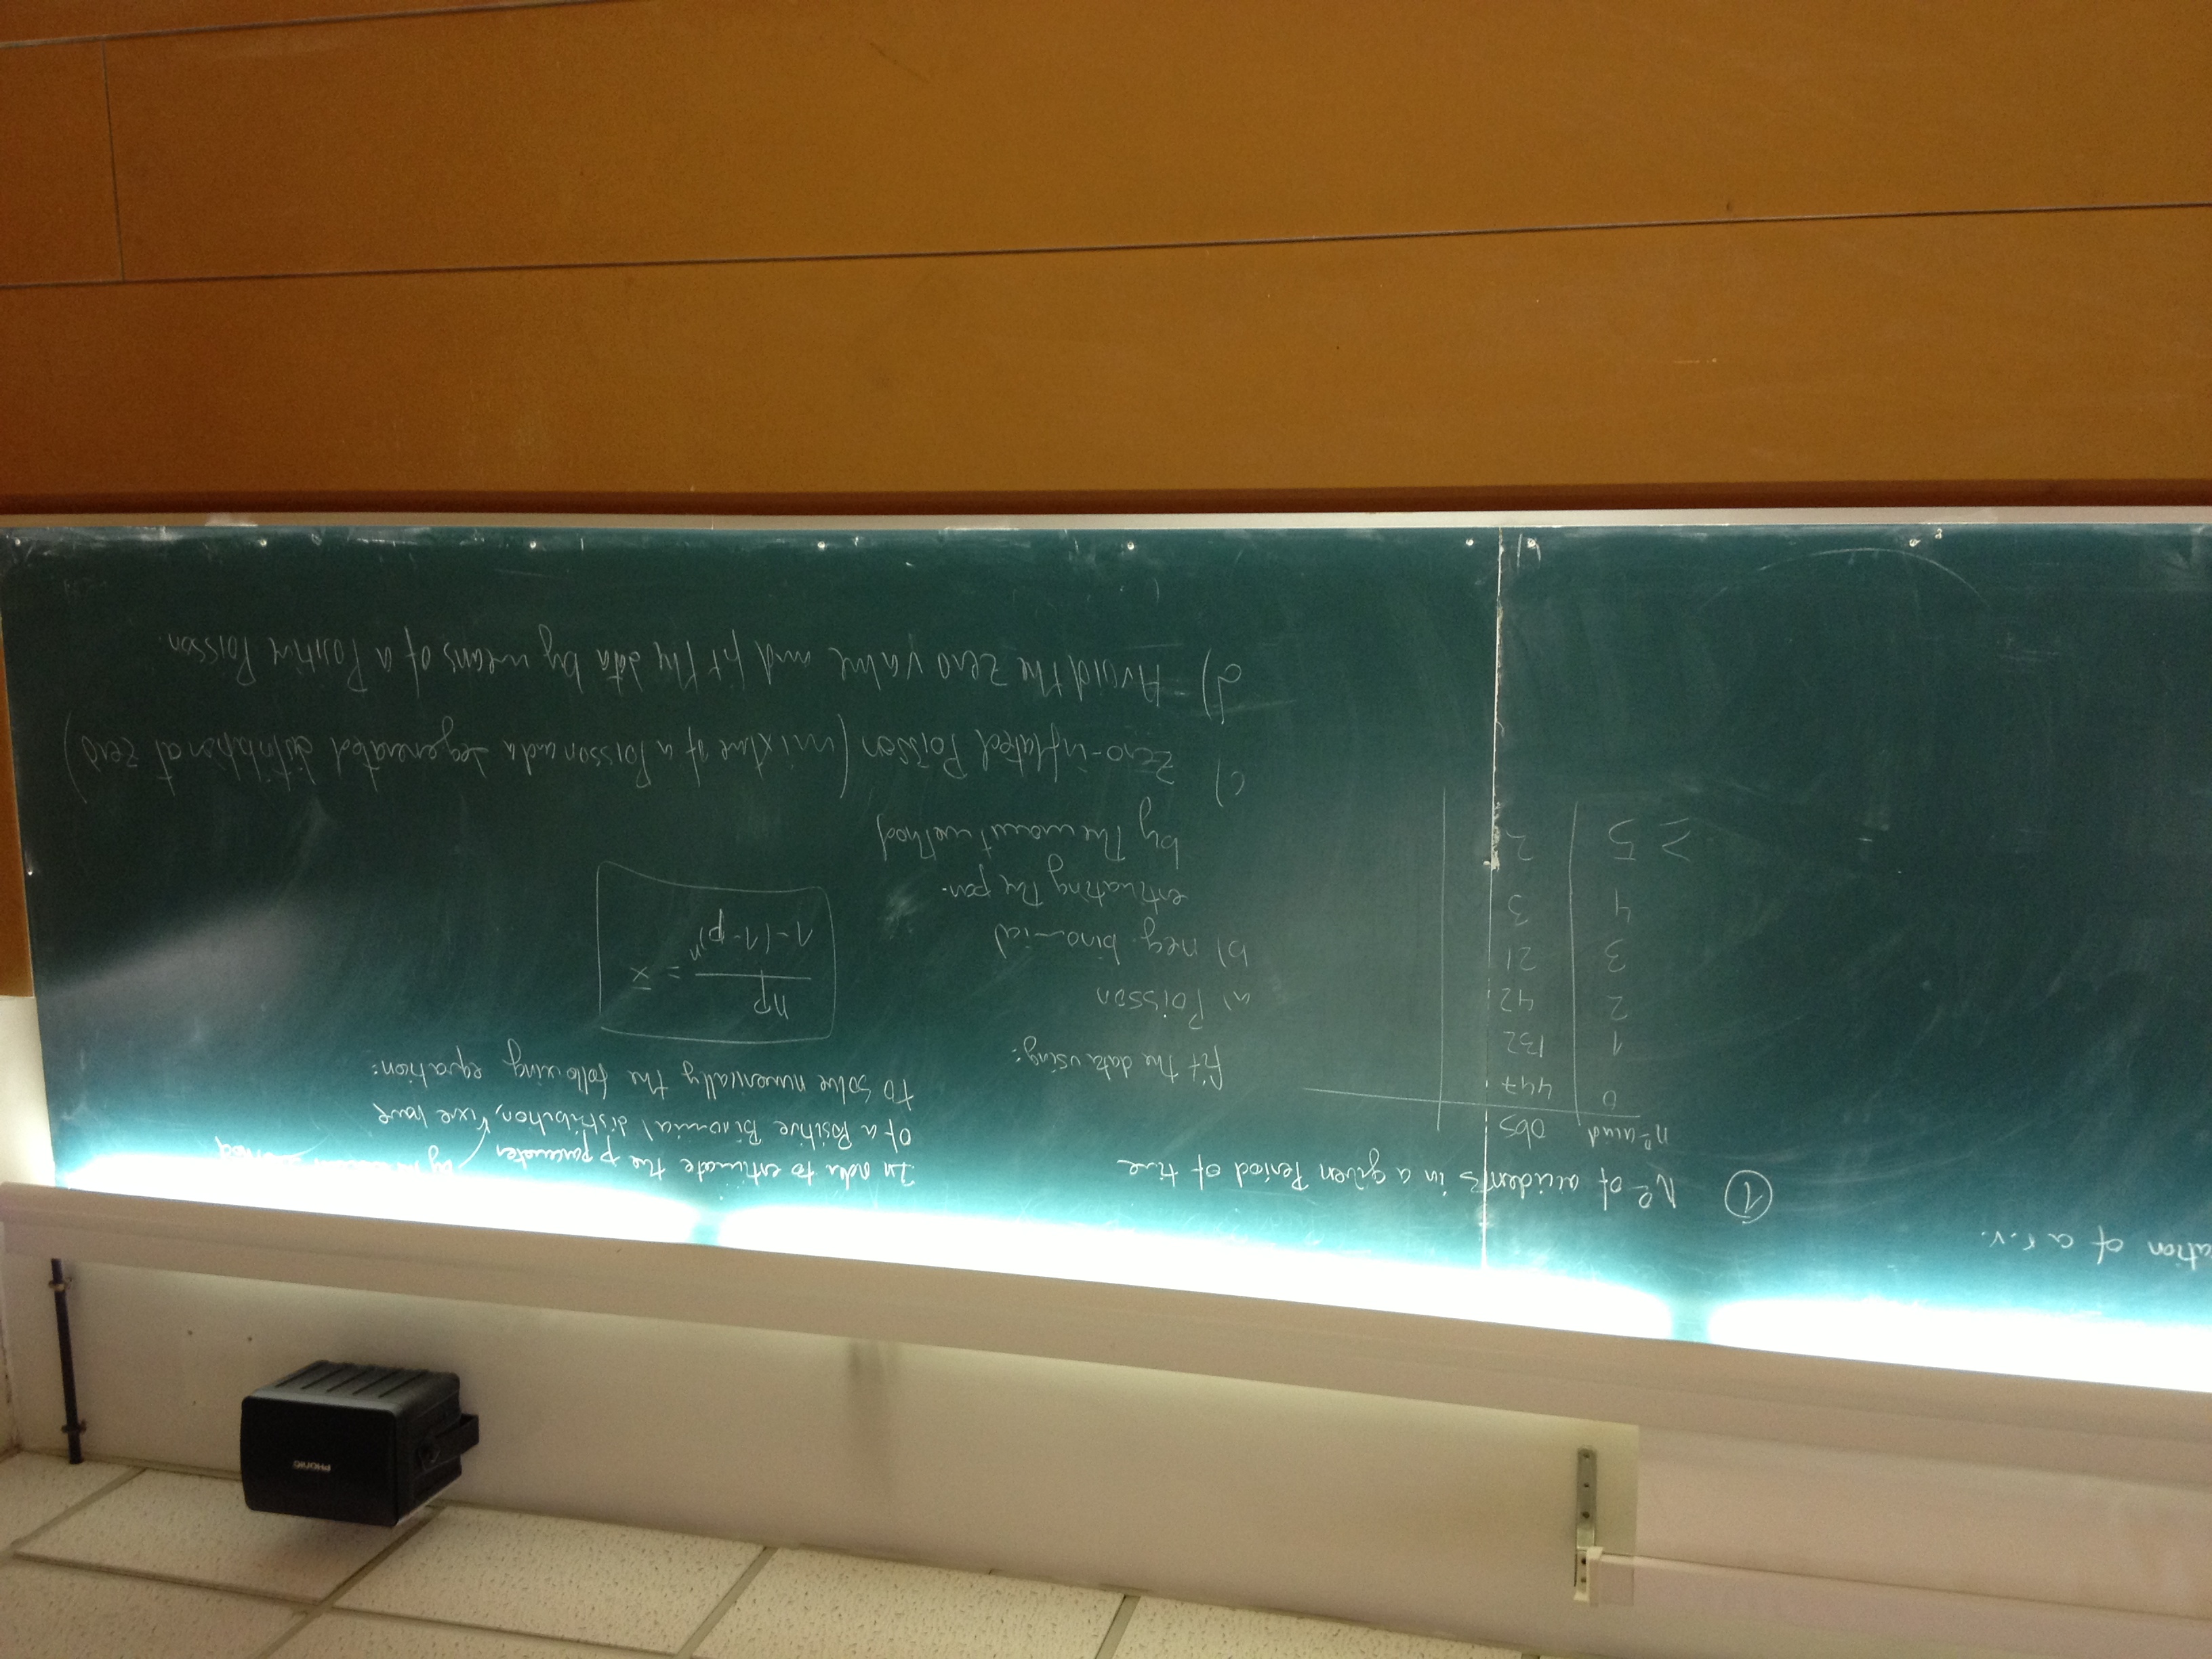 PHONIC
ation of a r.v.
① Nº of accidents in a given Period of time
nº accid. obs
0 447
1 132
2 42
3 21
4 3
≥ 5 2
fit the data using:
a) Poisson
b) neg. binomial
estimating the par.
by the mount method
c) Zero-inflated Poisson (mixture of a Poisson and a degenerated distribution at zero)
d) Avoid the zero value and fit the data by means of a Positive Poisson.
In order to estimate the p parameter by method
of a Positive Binomial distribution, we have
to solve numerically the following equation:
np
/ 1-(1-p)ⁿ = x̄